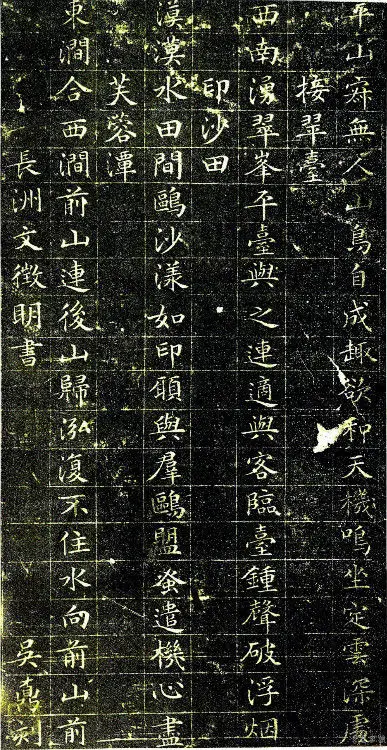 半山寂無人山鳥自成趣欲和天機鳴坐定雲深處
接翠臺
西南湧翠峯平臺與之連適與客臨臺鍾聲破浮烟
印沙田
漠漠水田間鷗沙漾如印願與羣鷗盟蚤遣機心盡
芙蓉潭
東澗合西澗前山連後山歸泓復不住水向前山前
長洲文徵明書 吳鼐刻